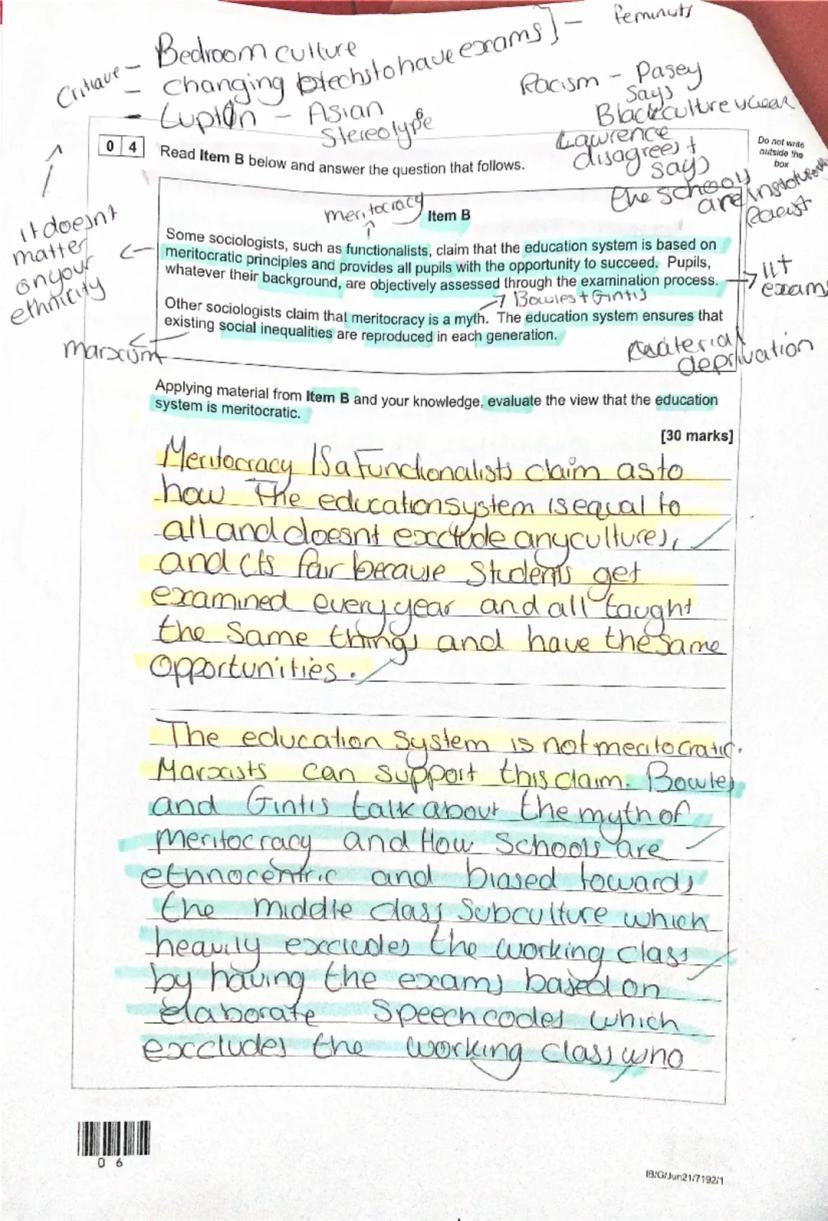 Critique - Bedroom culture
- changing btechs to have exams] - feminists
- Lupton - Asian
Stereotype
Racism - Pasey
says
Black culture unclear
Lawrence
disagrees +
says
the school
are
Racist
It doesnt
matter
on your
ethnicity
Do not write
outside the
box
0 4 Read Item B below and answer the question that follows.
meritocracy
Item B
Some sociologists, such as functionalists, claim that the education system is based on
meritocratic principles and provides all pupils with the opportunity to succeed. Pupils,
whatever their background, are objectively assessed through the examination process.
11+
exams
Bowles + Gintis
Other sociologists claim that meritocracy is a myth. The education system ensures that
existing social inequalities are reproduced in each generation.
marxism
material
deprivation
Applying material from Item B and your knowledge, evaluate the view that the education
system is meritocratic.
[30 marks]
Meritocracy is a Functionalists claim as to
how The education system is equal to
all and doesnt exclude any cultures,
and its fair because Students get
examined every year and all taught
the same things and have the same
opportunities.
The education system is not meritocratic.
Marxists can support this claim. Bowles
and Gintis talk about the myth of
meritocracy and How Schools are
ethnocentric and biased towards
the middle class Subculture which
heavily excludes the working class
by having the exams based on
elaborate Speech codes which
exccludes the working class who
06
IB/G/Jun21/7192/1